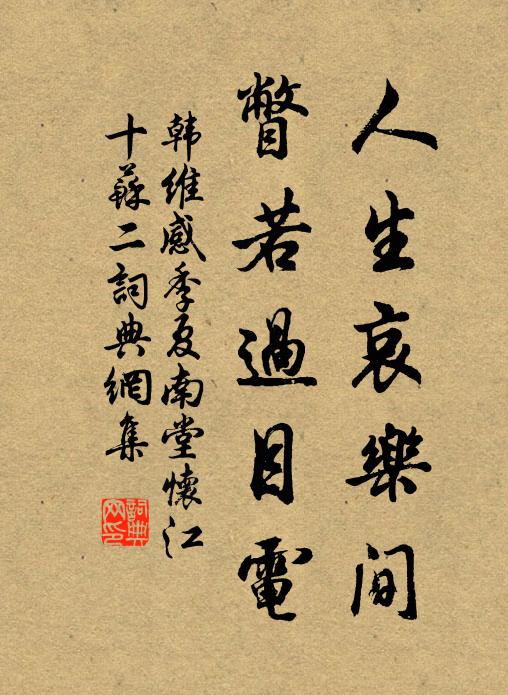 人生哀樂间
瞥若過目電
韩維感季夏南堂懷江
十蘇二詞典網集
詞典
网印